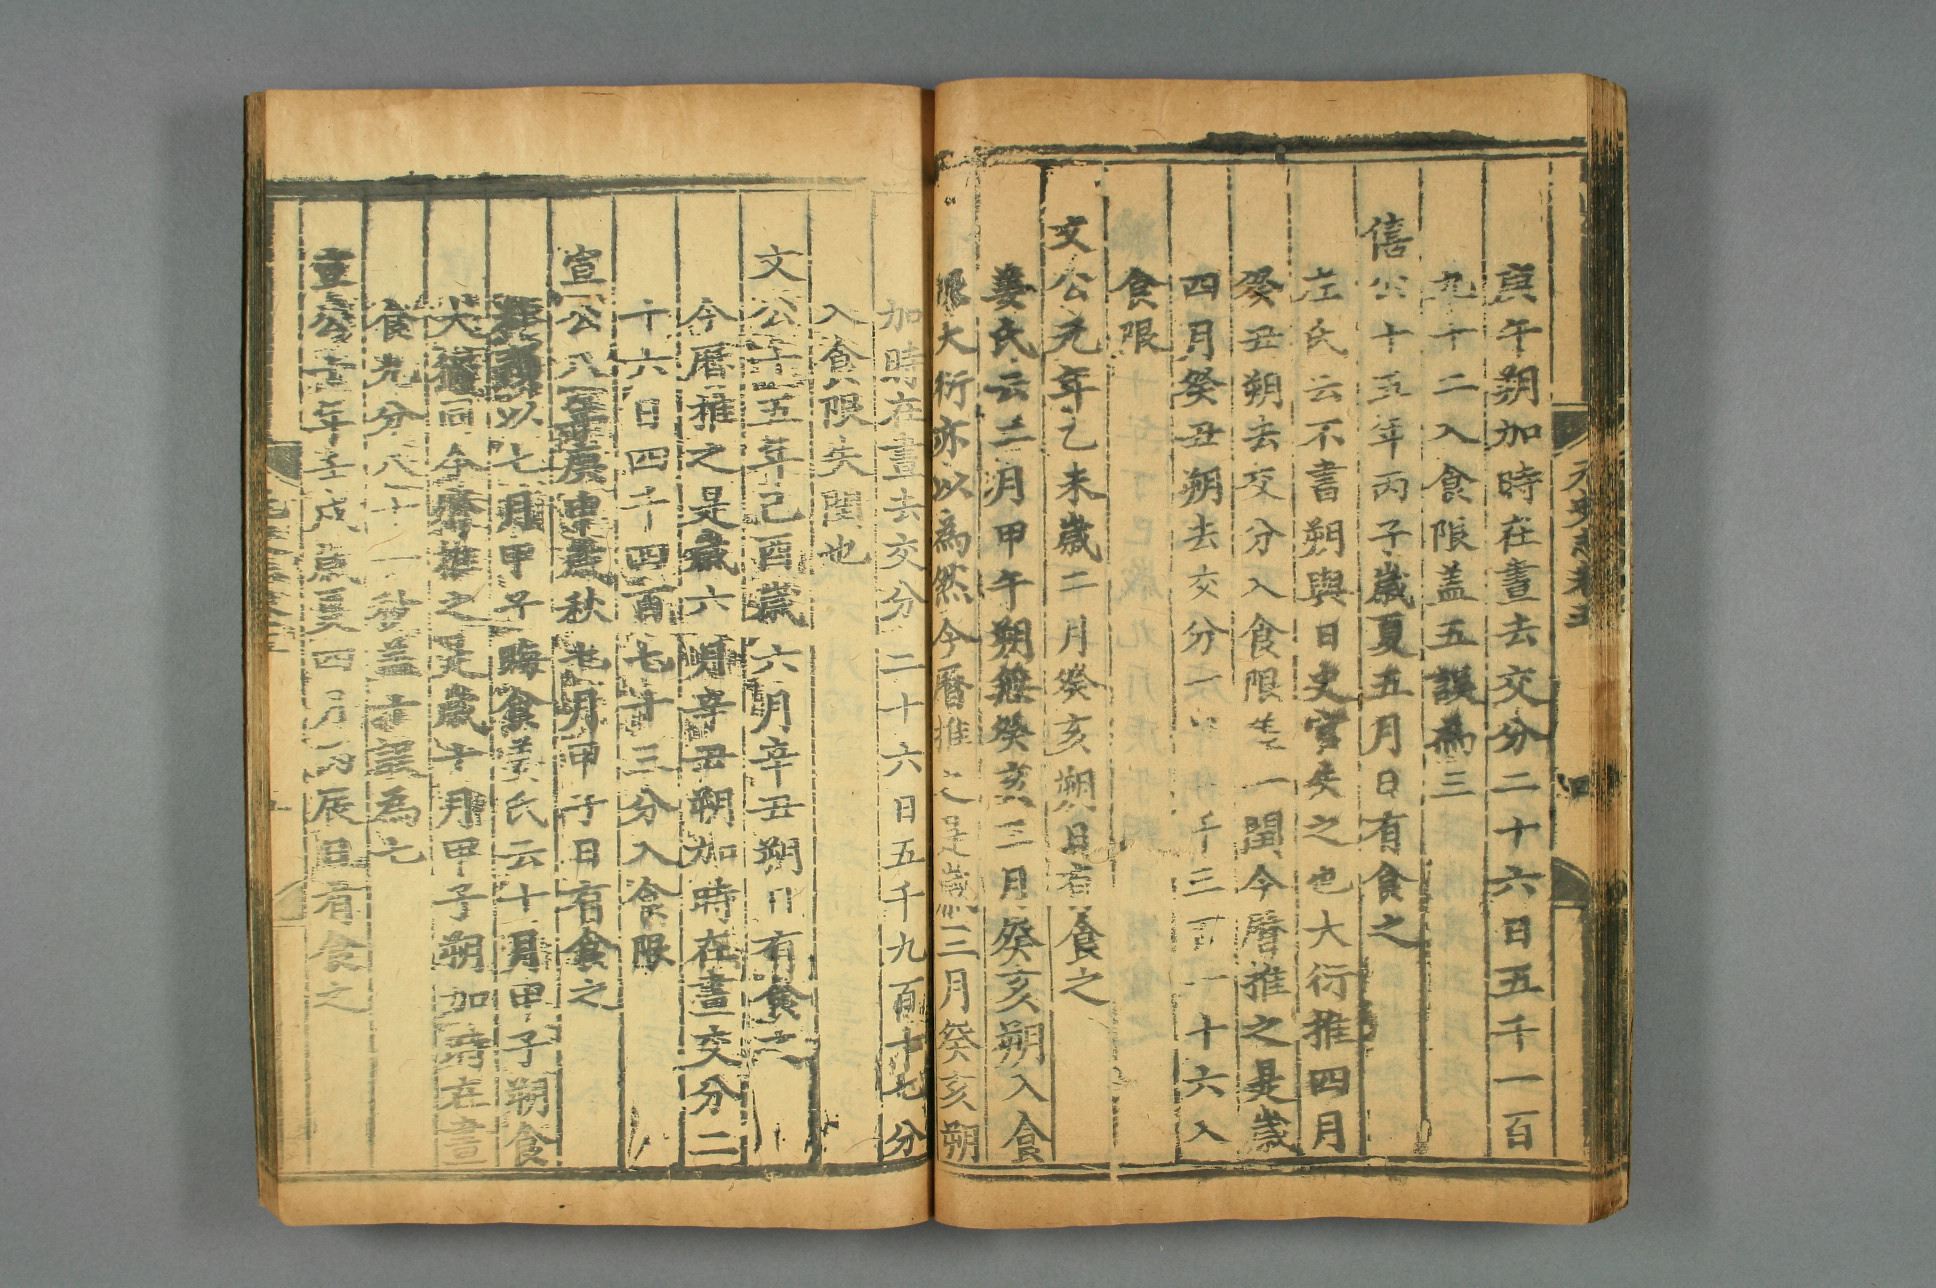 庚午朔加時在晝去交分二十六日五千一百
九十二入食限盖五誤爲三
僖公十五年丙子歲夏五月日有食之
左氏云不書朔與日史官失之也大衍推四月
癸丑朔去交分入食限差一閏今曆推之是歲
四月癸丑朔去交分一 千三百一十六入
食限
文公元年乙未歲二月癸亥朔日有食之
姜氏云二月甲午朔無癸亥三月癸亥朔入食
限大衍亦以爲然今曆推之是歲三月癸亥朔
加時在晝去交分二十六日五千九百十七分
入食限失閏也
文公十五年己酉歲六月辛丑朔日有食之
今曆推之是歲六月辛丑朔加時在晝交分二
十六日四千四百七十三分入食限
宣公八年庚申歲秋七月甲子日有食之
以七月甲子晦食姜氏云十月甲子朔食
大衍同今曆推之是歲十月甲子朔加時在晝
食九分八十一秒盖十誤爲七
宣公十年壬戌歲夏四月丙辰日有食之
元史志卷五
四